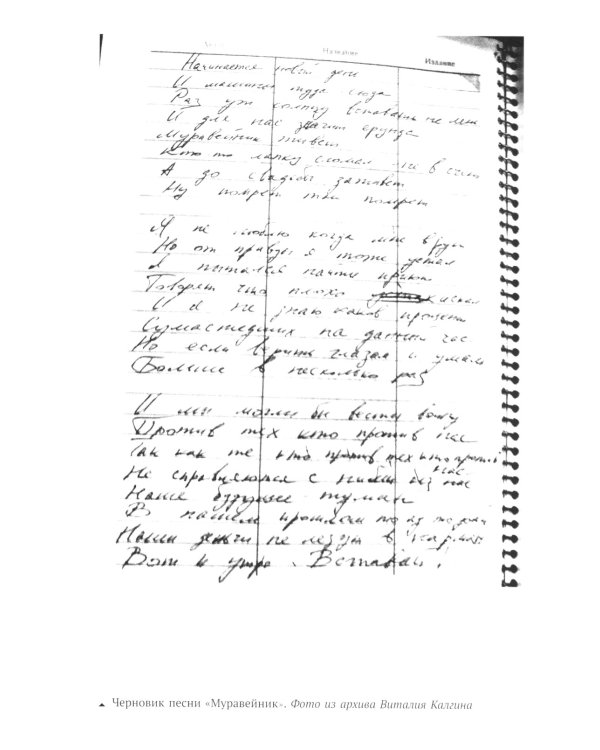 Название Издание
Начинается новый день
И машины туда сюда
Раз уж солнцу вставать не лень
И для нас значит ерунда
Муравейник живет
Кто то лапку сломал не в счет
А до свадьбы заживет
Ну помрет так помрет
Я не люблю когда мне врут
Но от правды я тоже устал
Я пытался найти приют
Говорят что плохо искал
И я не знаю каков процент
Сумасшедших на данный час
Но если верить глазам и ушам
Больше в несколько раз
И мы могли бы вести войну
Против тех кто против нас
Так как те кто против тех кто против
нас
Не справляются с ними без нас
Наше будущее туман
В нашем прошлом то ад то рай
Наши деньги не лезут в карман
Вот и утро. Вставай!
Черновик песни «Муравейник». Фото из архива Виталия Калгина